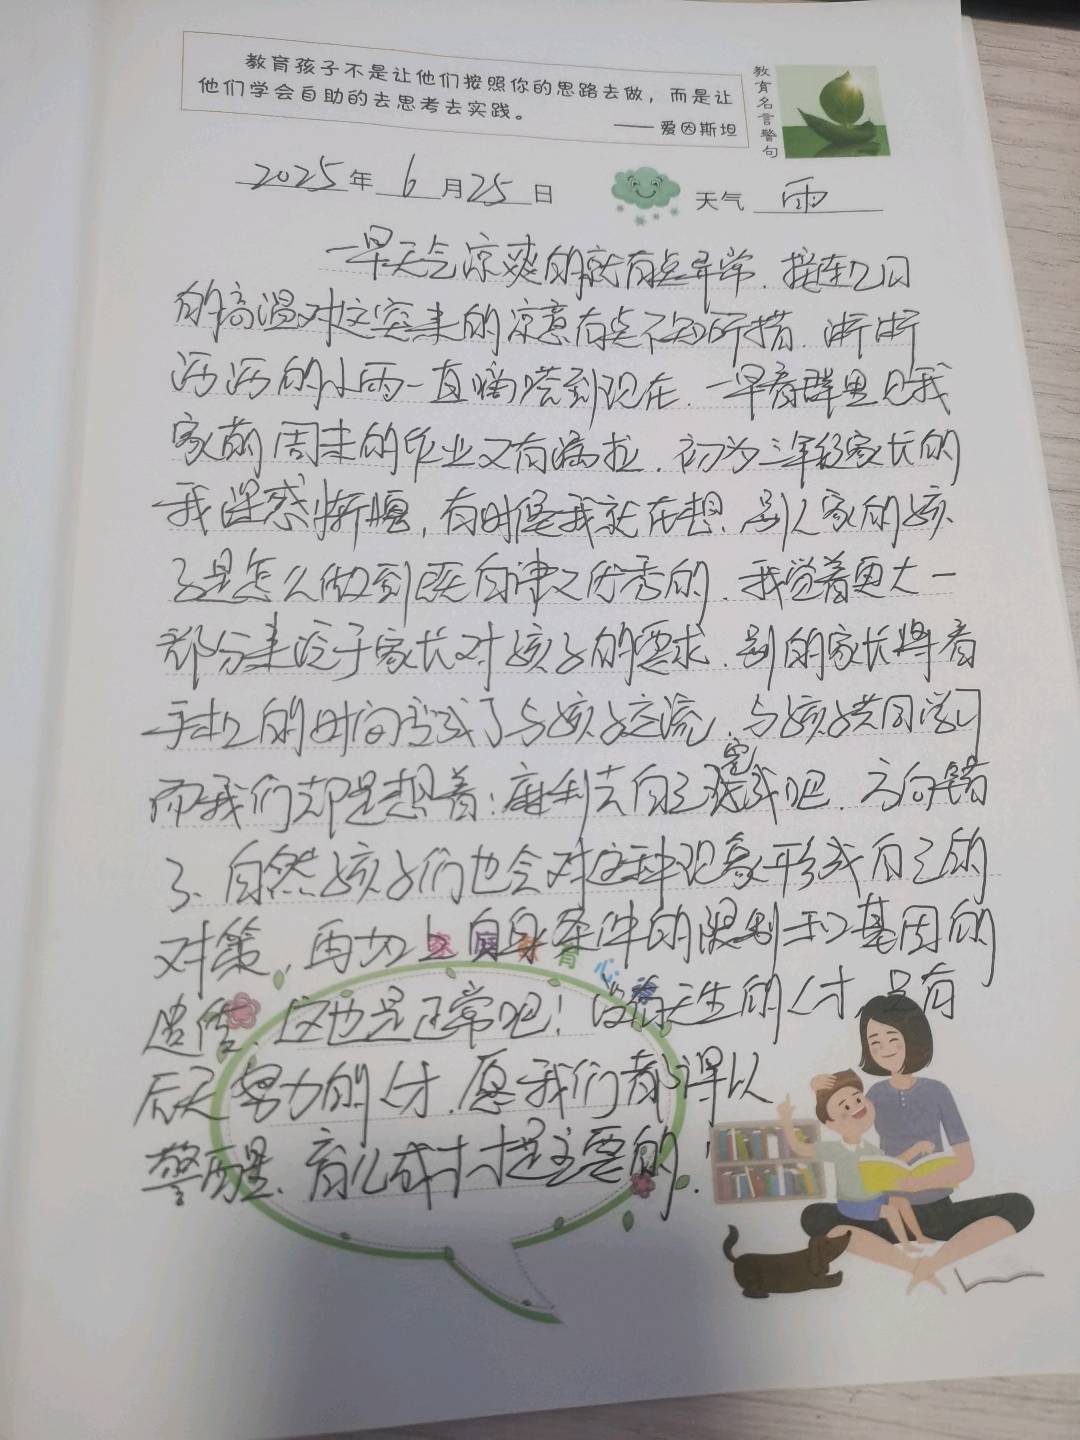 教育孩子不是让他们按照你的思路去做，而是让
他们学会自助的去思考去实践。
—— 爱因斯坦
教育名言警句
2025年6月25日
天气 雨
一早天气凉爽的就有点异常.接连几日
的高温对这突来的凉意有点不知所措.淅淅
沥沥的小雨一直嘀嗒到现在.一早看群里见我
家萌周末的作业又有漏拉.初为三年级家长的
我深感惭愧，有时候我就在想.别人家的孩
子是怎么做到既自律又优秀的.我觉着更大一
部分来泛于家长对孩子的要求.别的家长将看
手机的时间当成了与孩子交流、与孩子共同学习
而我们却是想着：麻利去自己完成吧.方向错
了、自然孩子们也会对这种现象形成自己的
对策，再加上自身条件的限制和基因的
遗传.这也是正常吧！没有天生的人才.只有
后天努力的人才.愿我们都得以
警醒、育儿成才才是主要的.
家庭教育心语